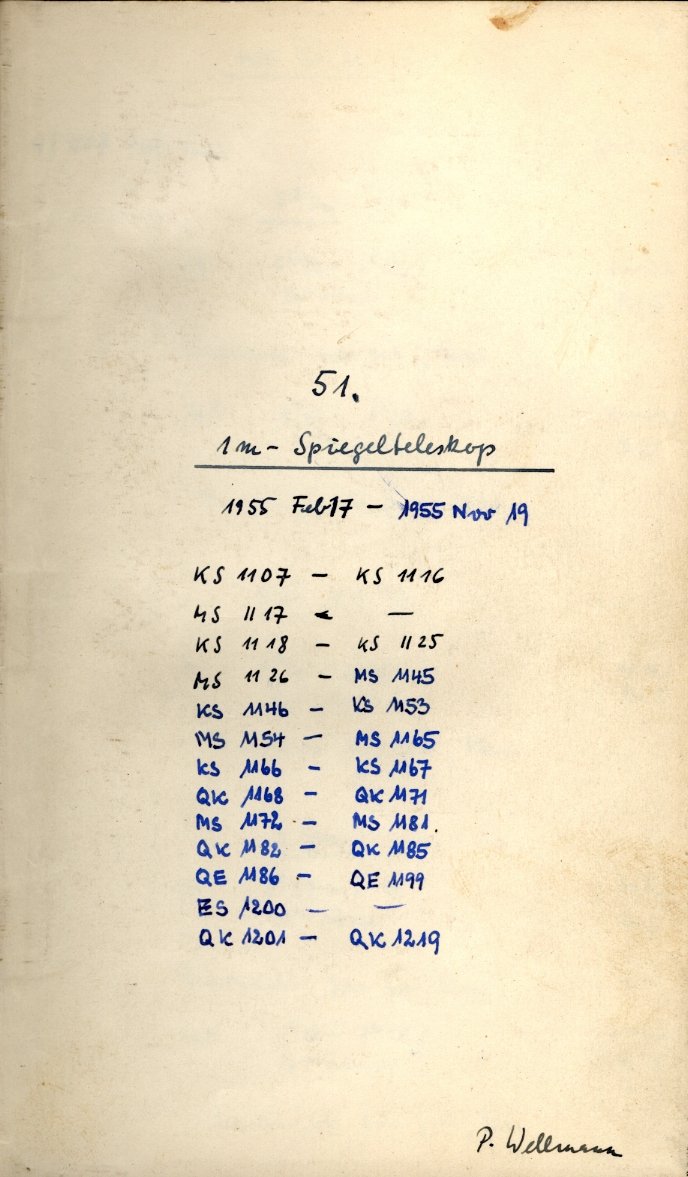 51.
1m - Spiegelteleskop
1955 Feb 17 - 1955 Nov 19
KS 1107 - KS 1116
MS 1117 - -
KS 1118 - KS 1125
MS 1126 - MS 1145
KS 1146 - KS 1153
MS 1154 - MS 1165
KS 1166 - KS 1167
QK 1168 - QK 1171
MS 1172 - MS 1181
QK 1182 - QK 1185
QE 1186 - QE 1199
ES 1200 - -
QK 1201 - QK 1219
P. Wellmann